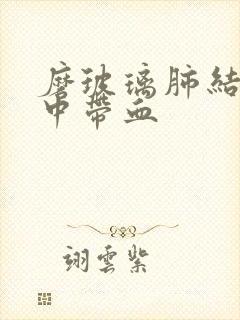 磨玻璃肺結
中帶血
翊雲紫